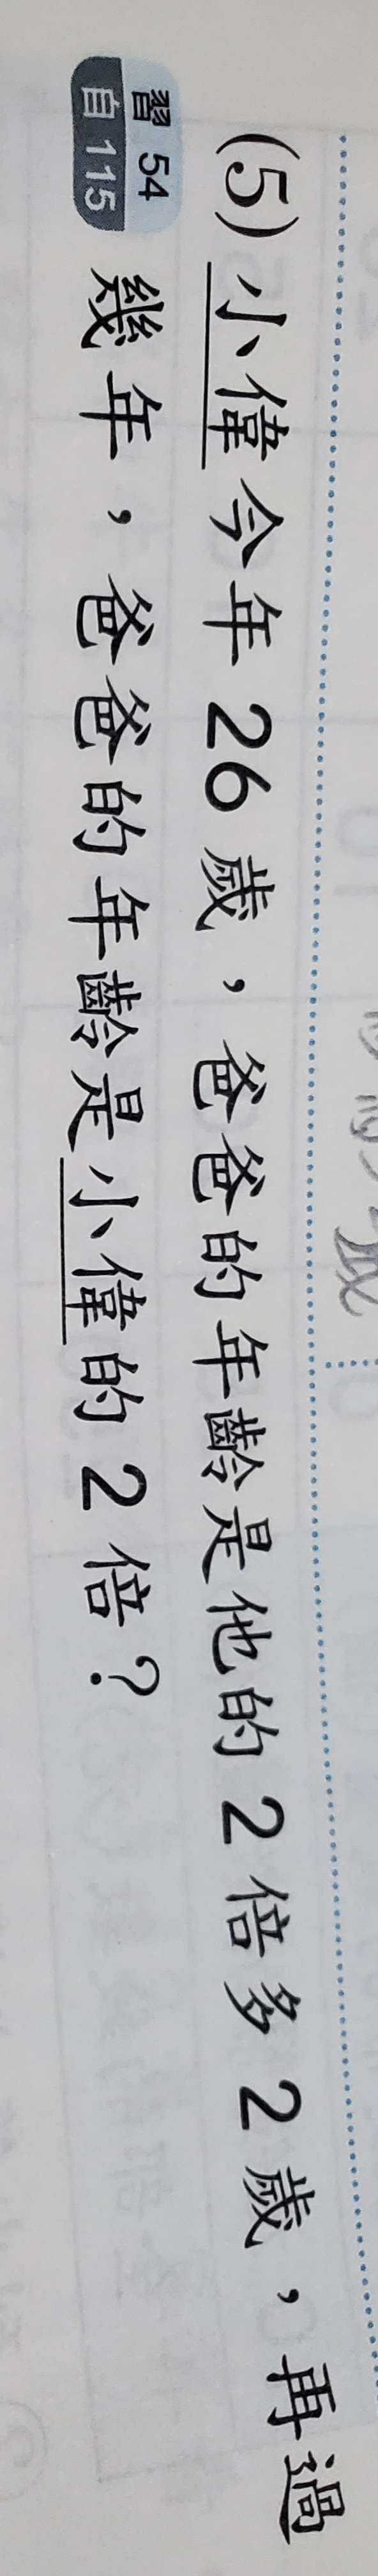 (5) 小偉今年26歲，爸爸的年齡是他的2倍多2歲，再過
習 54
自 115
幾年，爸爸的年齡是小偉的2倍？